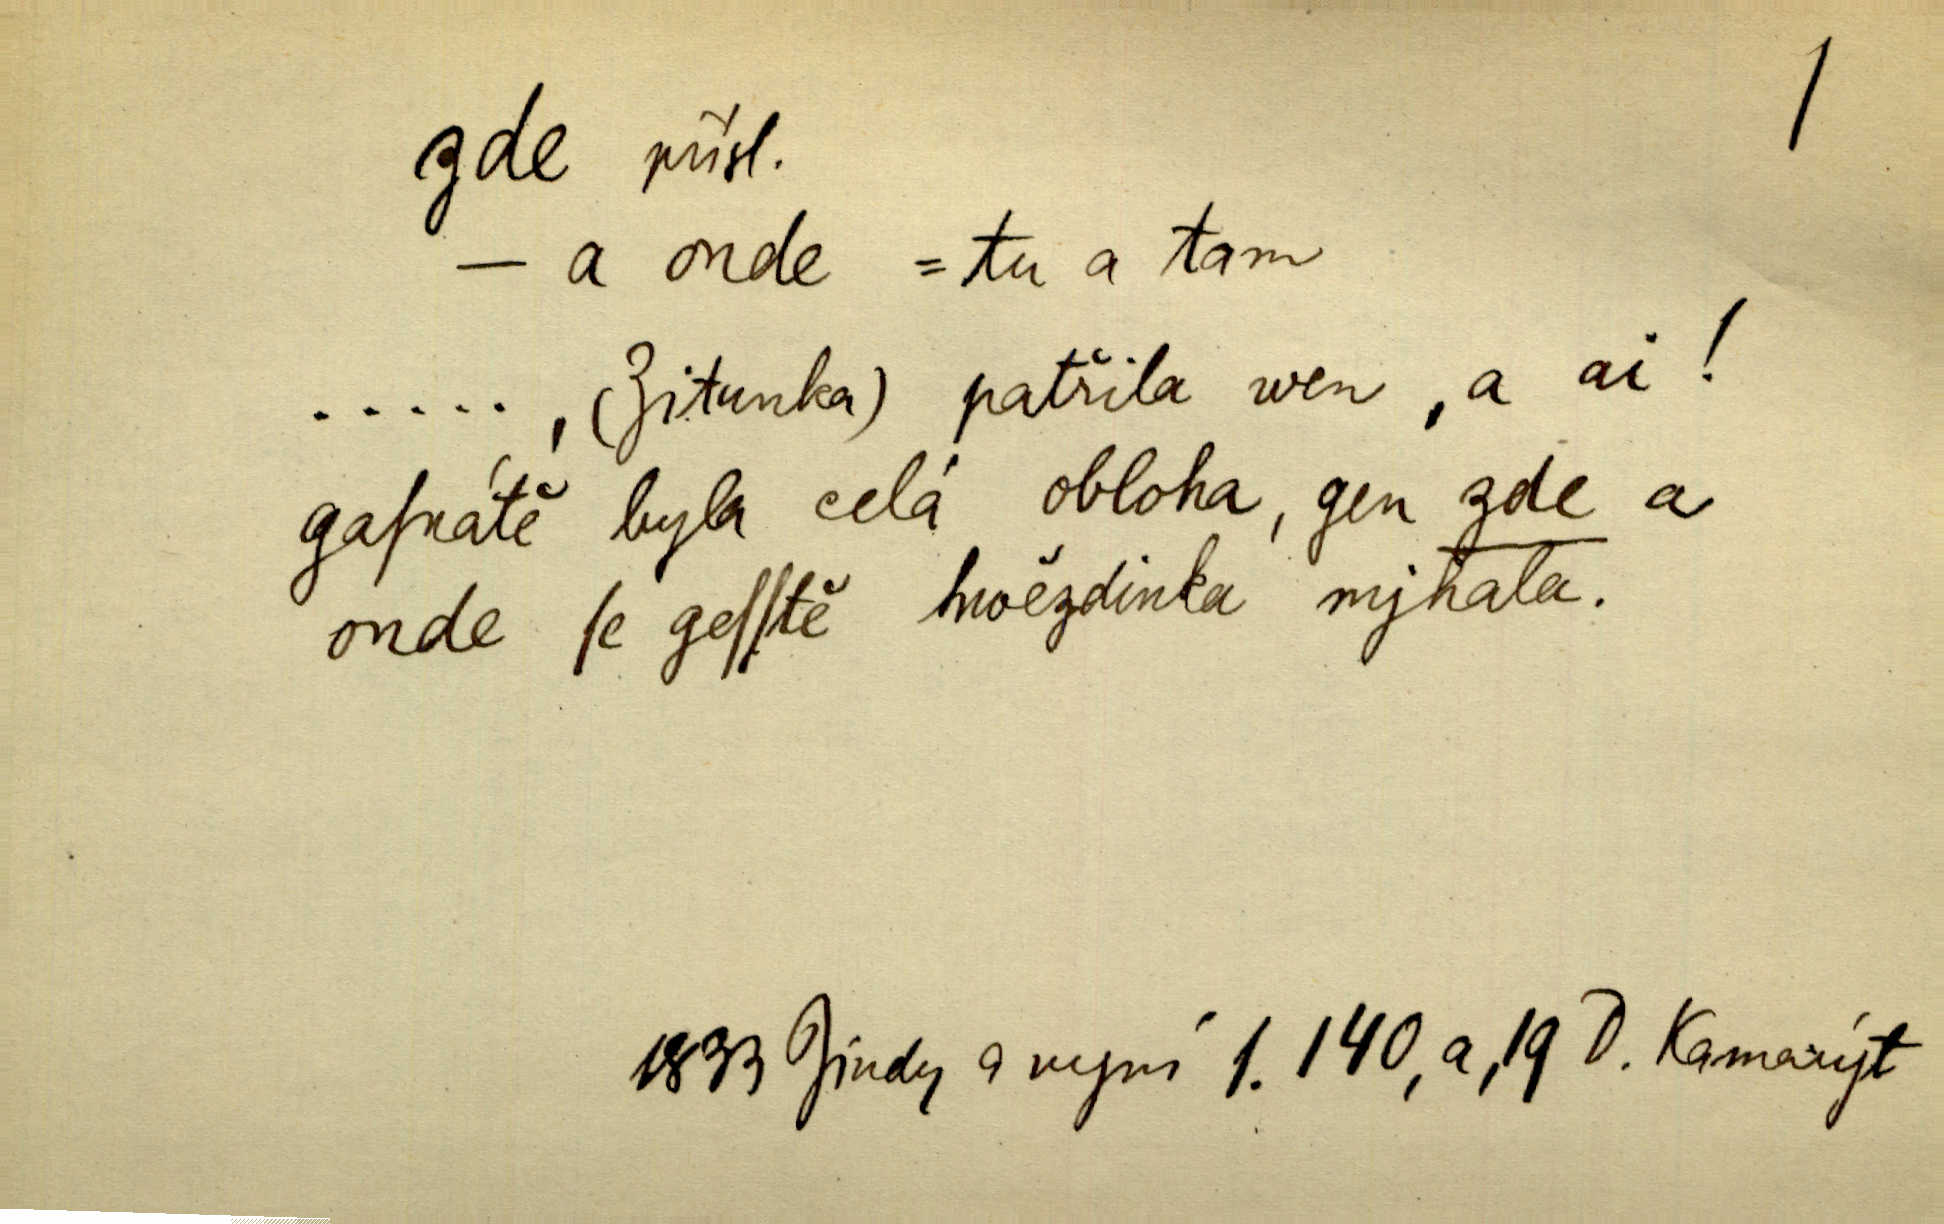 1
zde přísl.
— a onde = tu a tam
....., (Zitunka) patřila wen, a ai!
gaſnátě byla celá obloha, gen zde a
onde ſe geſſtě hwězdinka mjhala.
1833 Jindy a nyní 1. 140, a, 19 D. Kamarýt